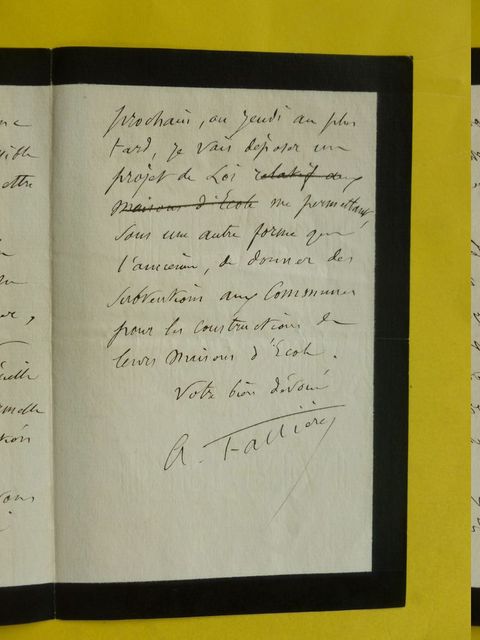 prochain, ou jeudi au plus
tard, je vais déposer un
projet de Loi relatif aux
Maisons d'Ecole me permettant,
sous une autre forme que
l'ancienne, de donner des
subventions aux Communes
pour les constructions de
leurs Maisons d'Ecole.
Votre bien dévoué
A. Fallières